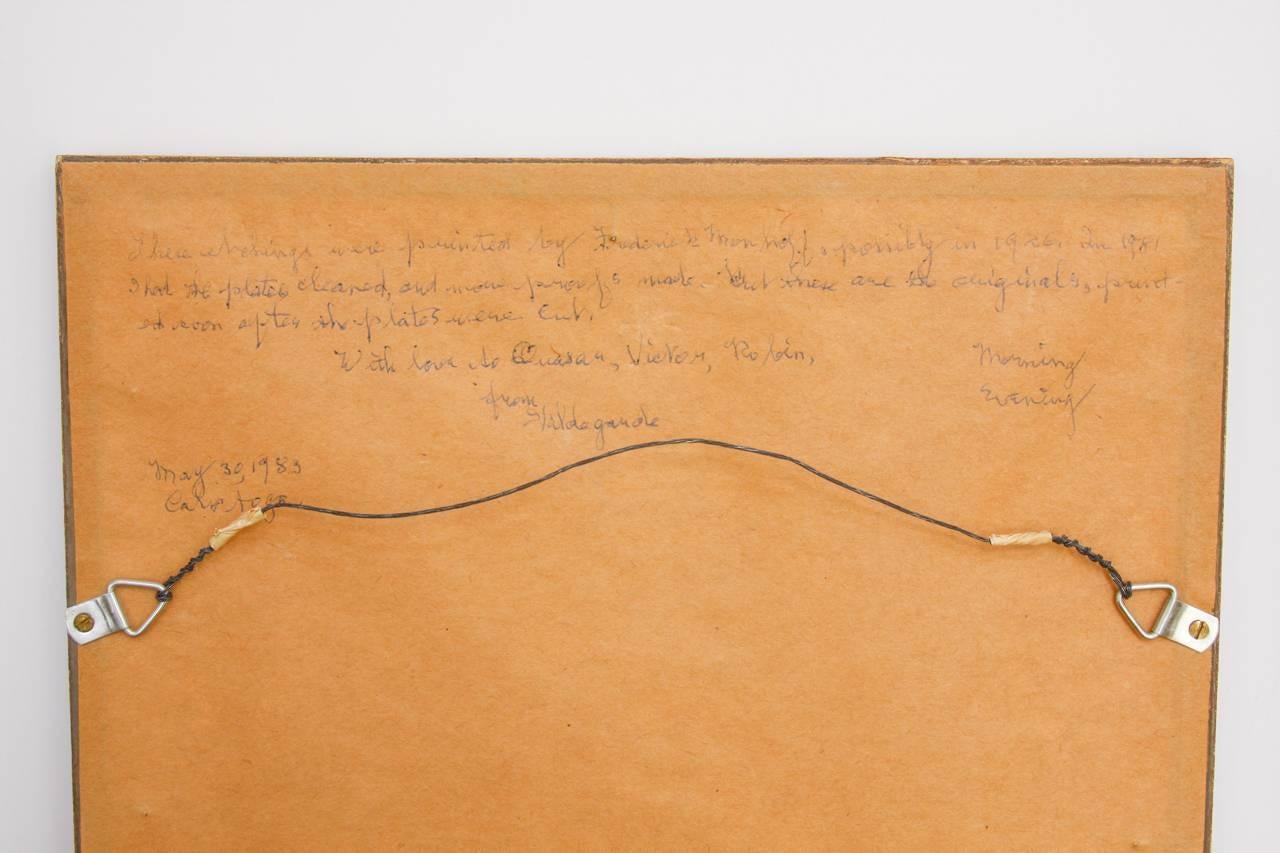 These etchings were printed by Frederick Monhoff, possibly in 1926. In 1981
I had the plates cleaned, and more proofs made. But these are the originals, print-
ed soon after the plates were cut.
With love to Quasar, Victor, Robin,
from
Hildegarde
Morning
Evening
May 30, 1983